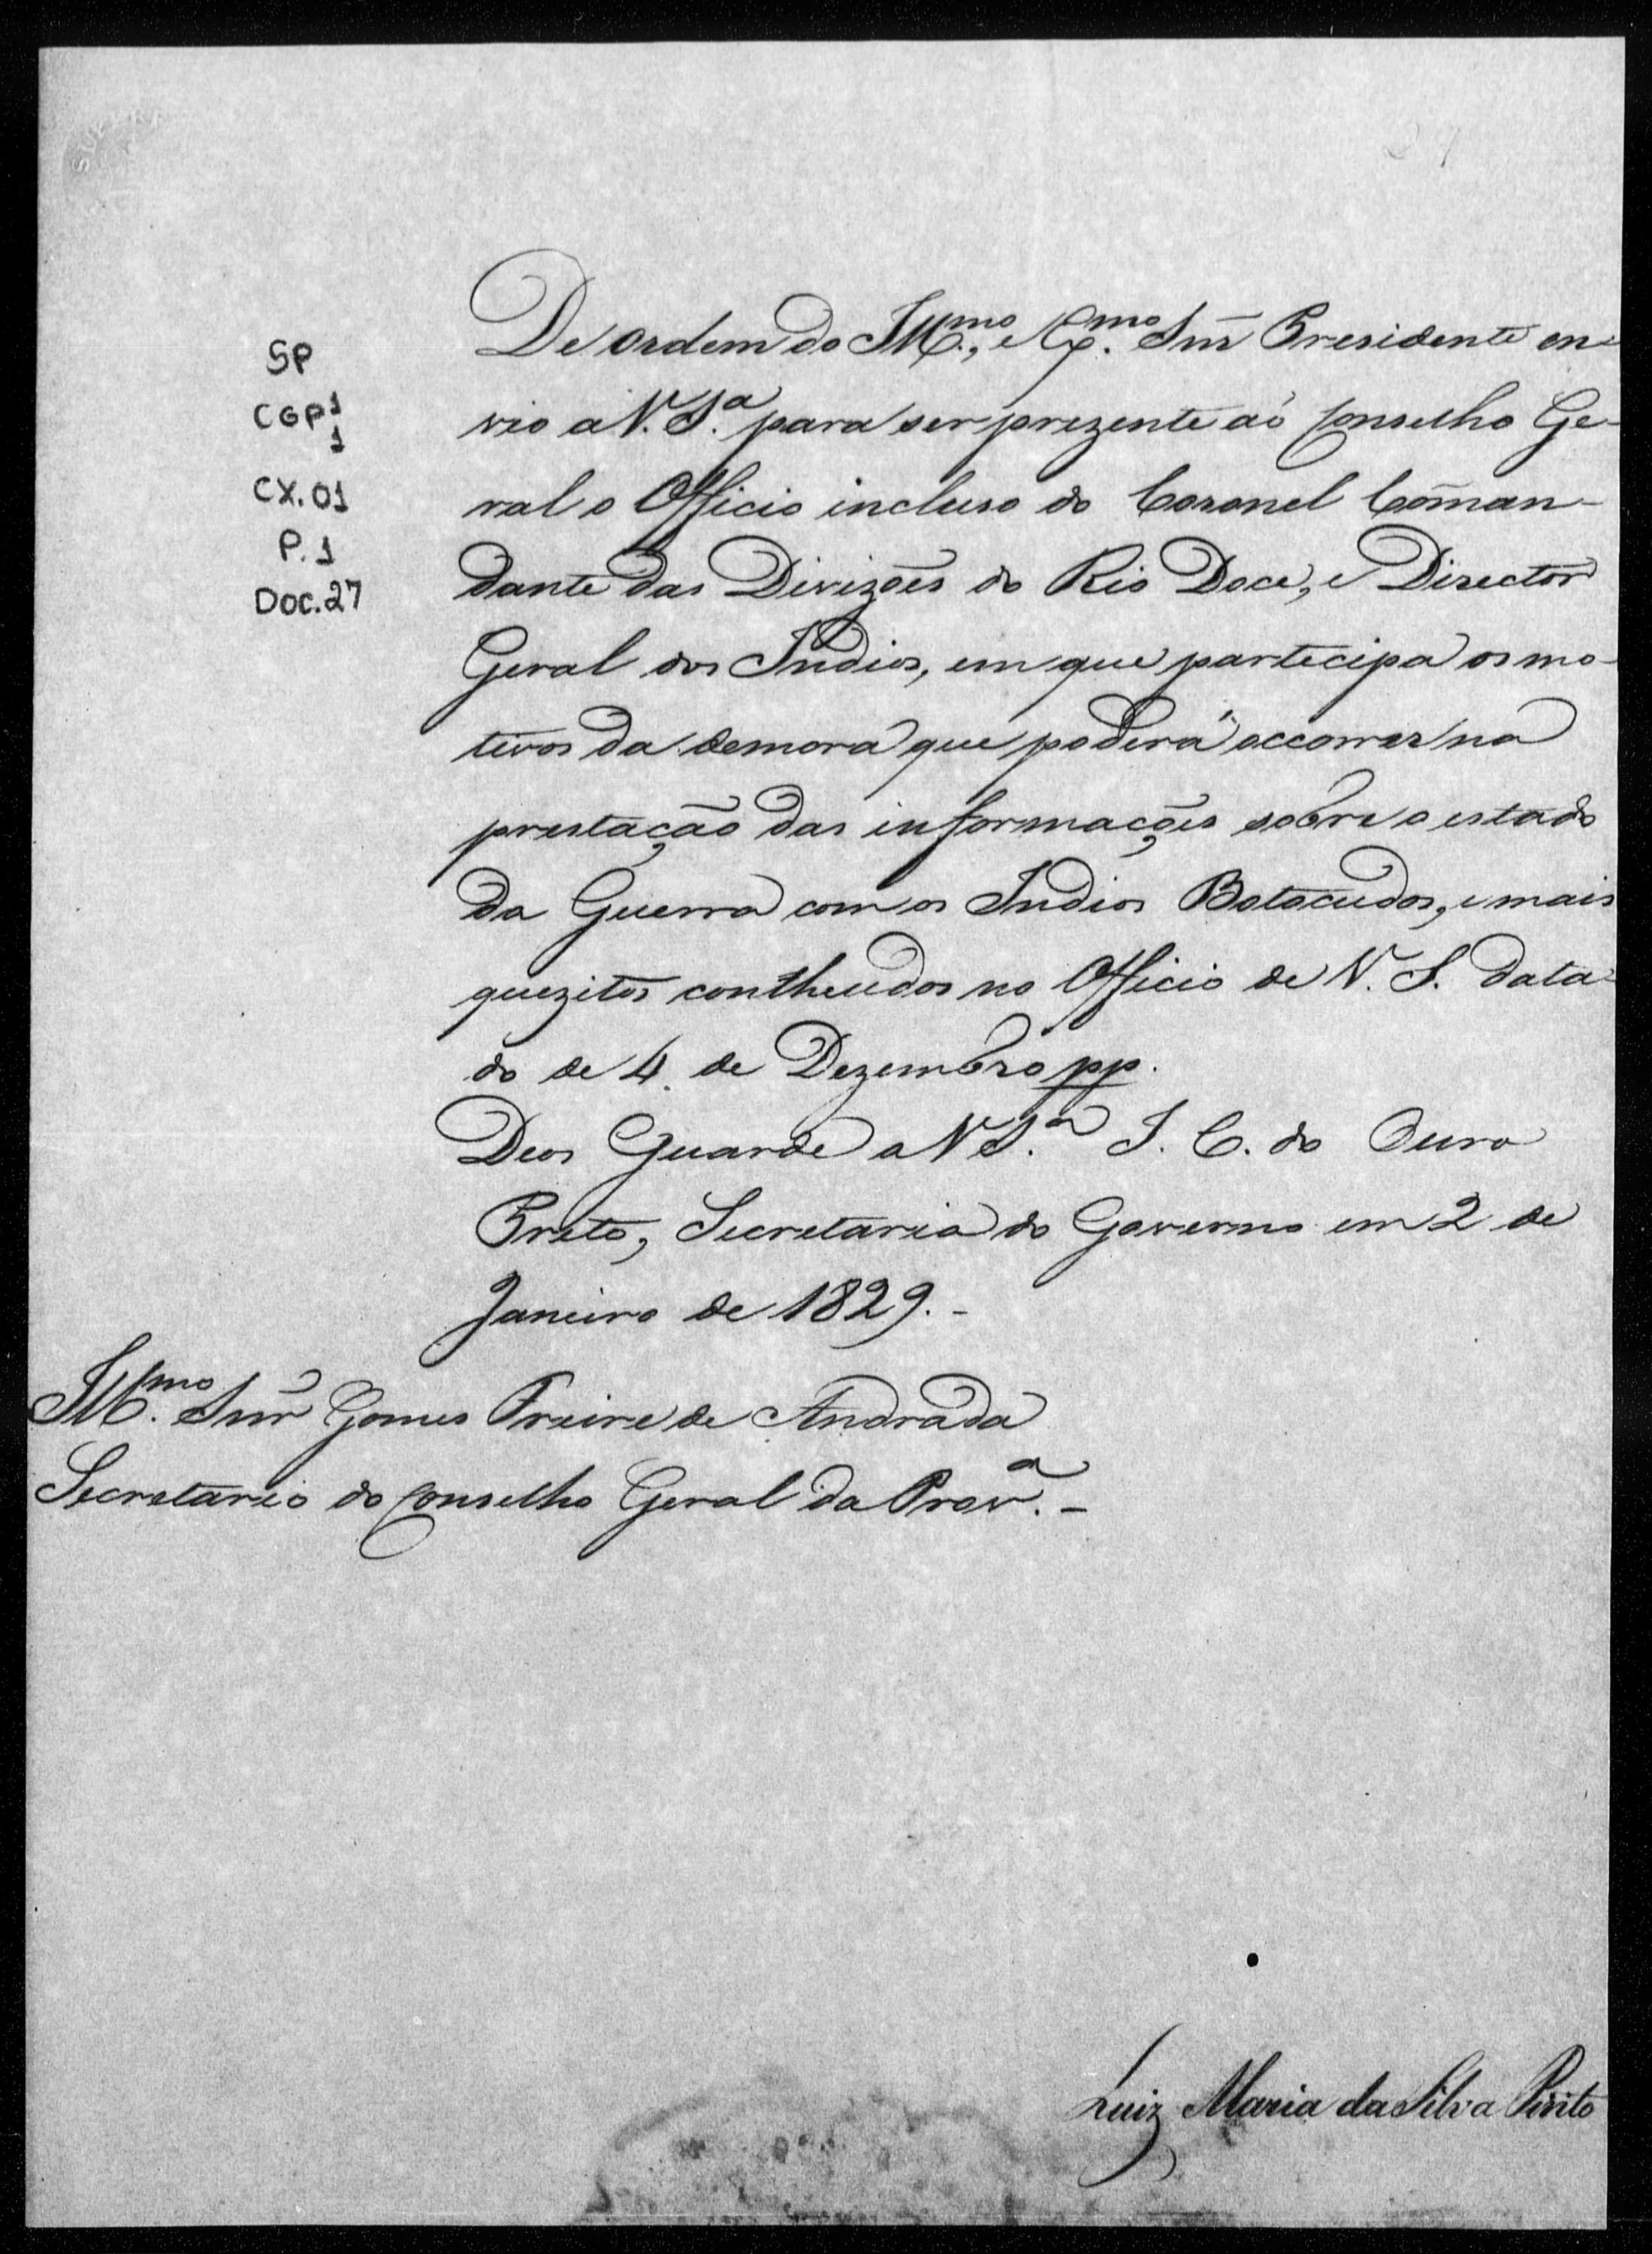 SP
CGP 1
1
CX. 01
P. 1
Doc. 27
De ordem do Ill.mo, e Ex.mo Snr̃ Presidente en-
vio a V. S.a para ser prezente aó Conselho Ge-
ral o Officio incluso do Coronel Com̃an-
dante das Divizões do Rio Doce, e Director
Geral dos Indios, em que partecipa os mo-
tivos da demora que poderá occorrer na
prestação das informações sobre o estado
da Guerra com os Indios Botocudos, e mais
quezitos contheudos no Officio de V. S. data-
do de 4. de Dezembro pp.
Deos Guarde a V S.a I. C. do Ouro
Preto, Secretaria do Governo em 2 de
Janeiro de 1829. -
Ill.mo Snr̃ Gomes Freire de Andrada
Secretario do Conselho Geral da Prov.a -
Luiz Maria da Silva Pinto